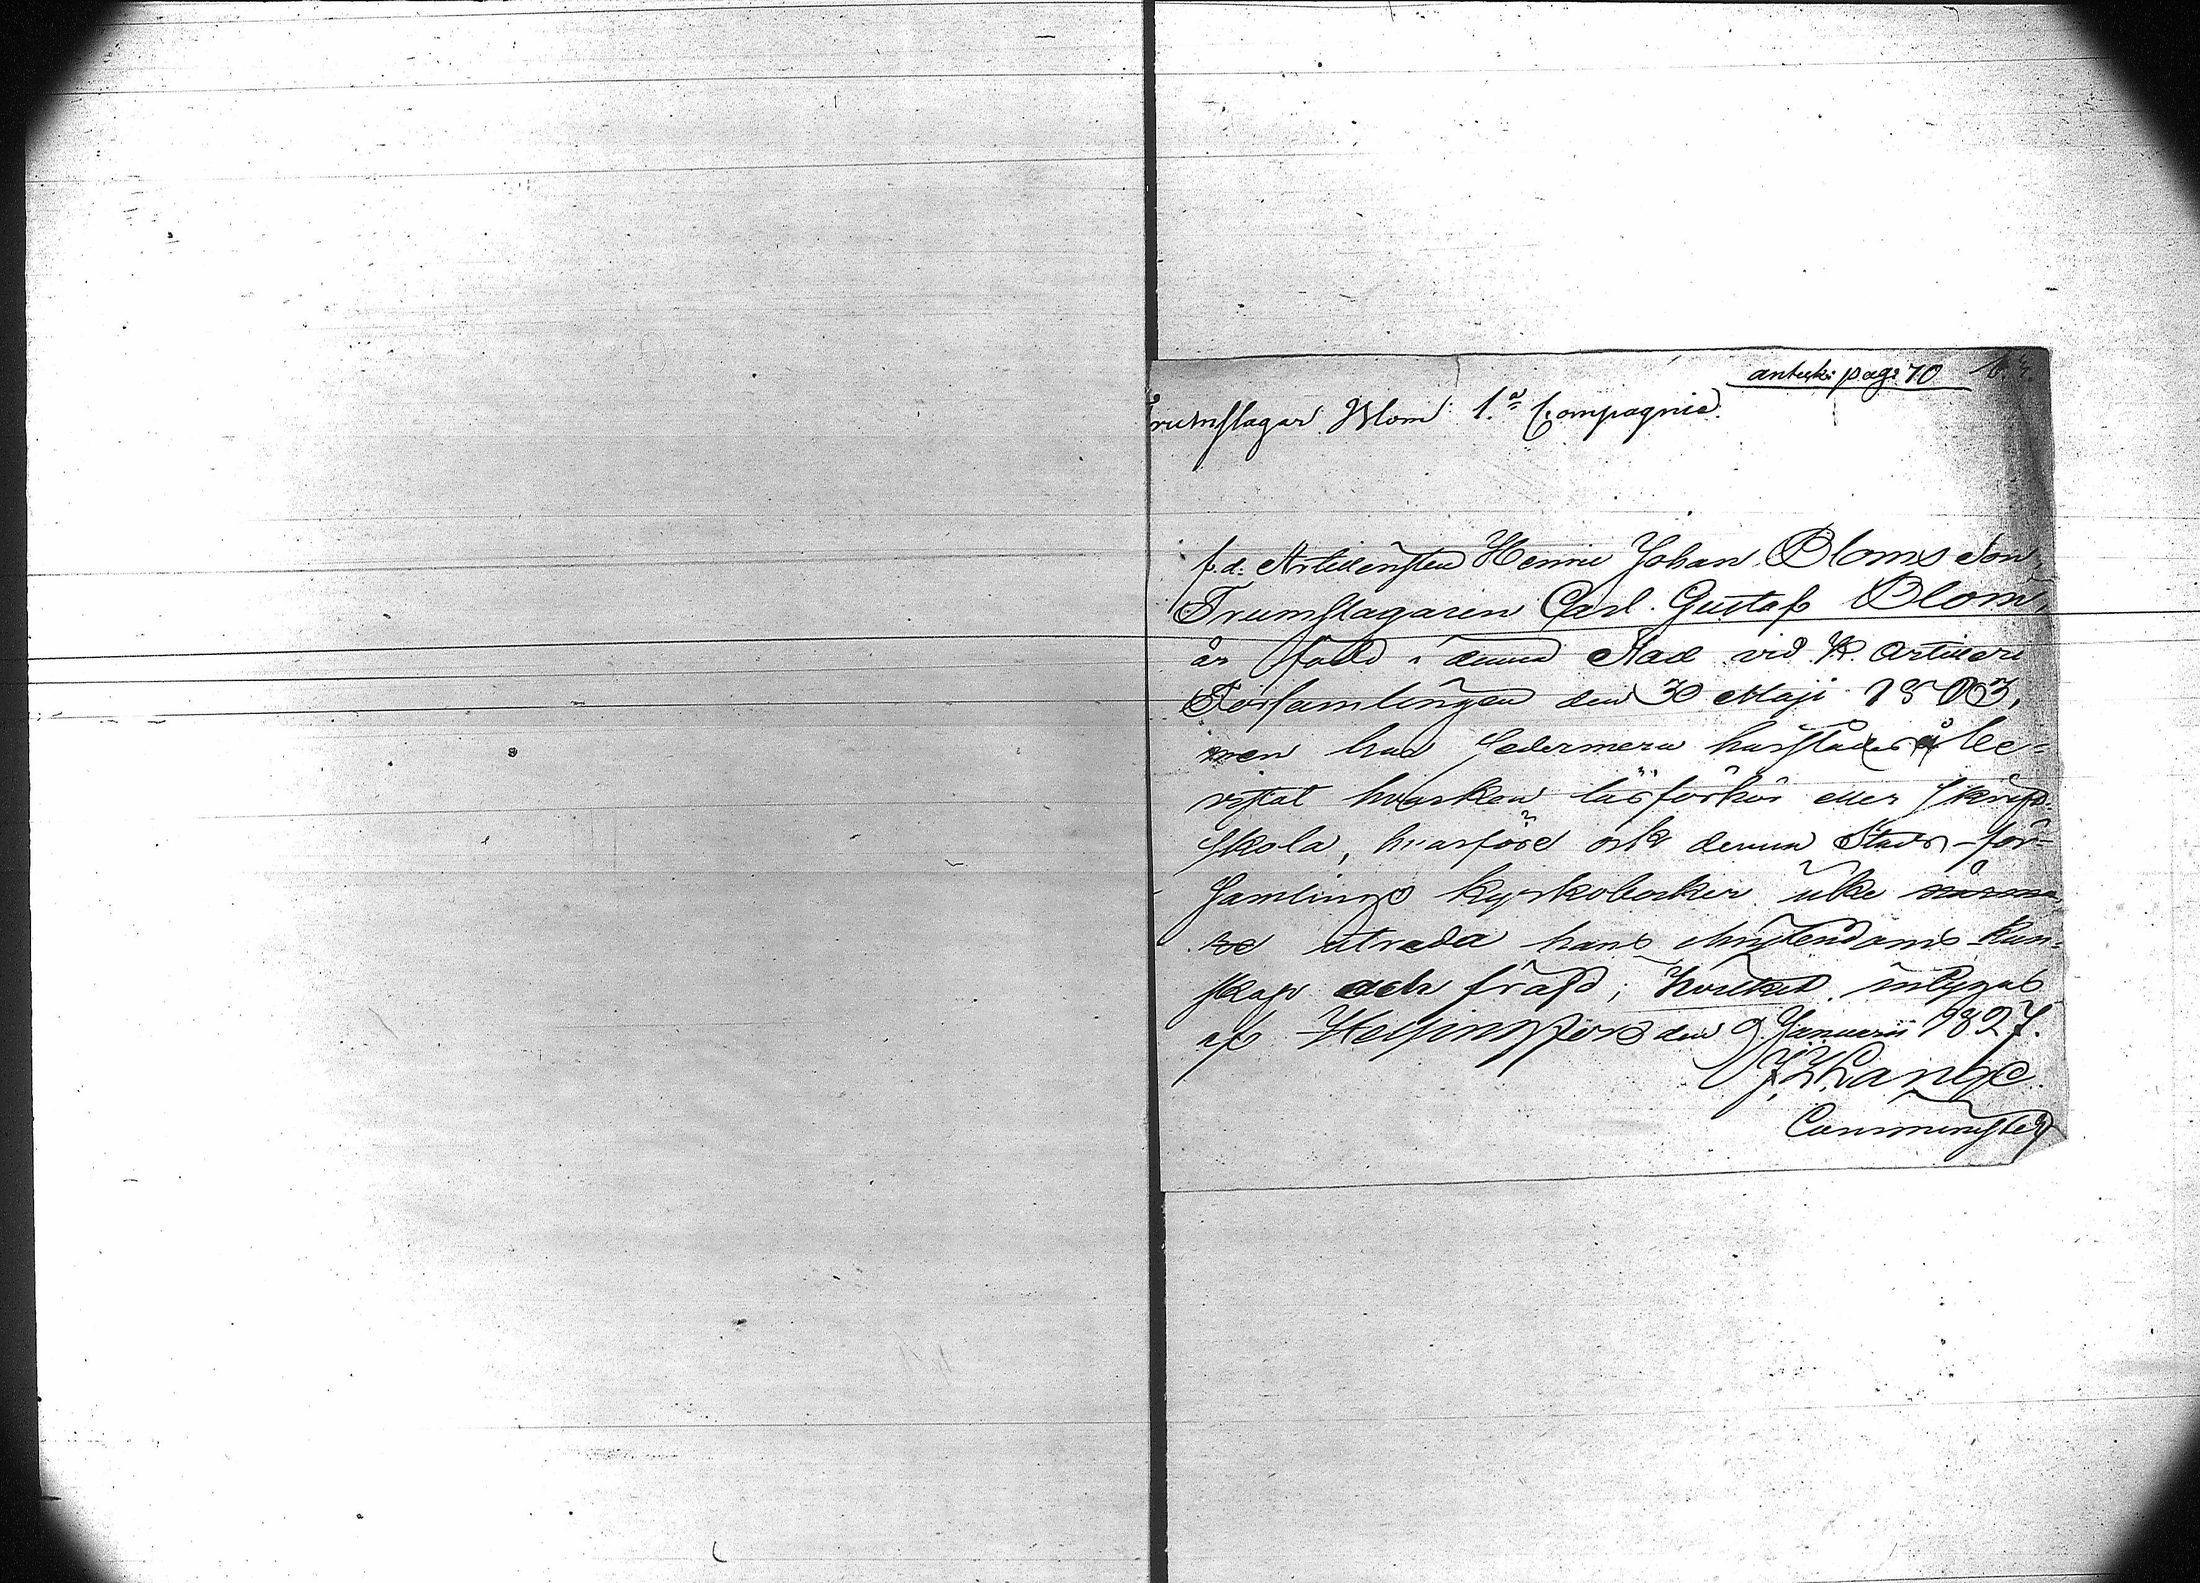 anteckn: pag: 70
Trumslagar Blom 1.a Compagnie.
f.d. Artilleristen Henric Johan Bloms Son,
Trumslagaren Carl Gustaf Blom,
är född i denna Stad vid K. Artilleri
Församlingen den 30 Maji 1803,
men har sedermera härstädes be-
vistat hvarken läsförhör eller skrift-
skola, hvarföre ock denna Stads-för-
samlings kyrkoböcker icke
utreda hans christendoms-kun-
skap och fräjd; hvilket intygas
af Helsingfors den 9 Januarii 1827.
Comminister